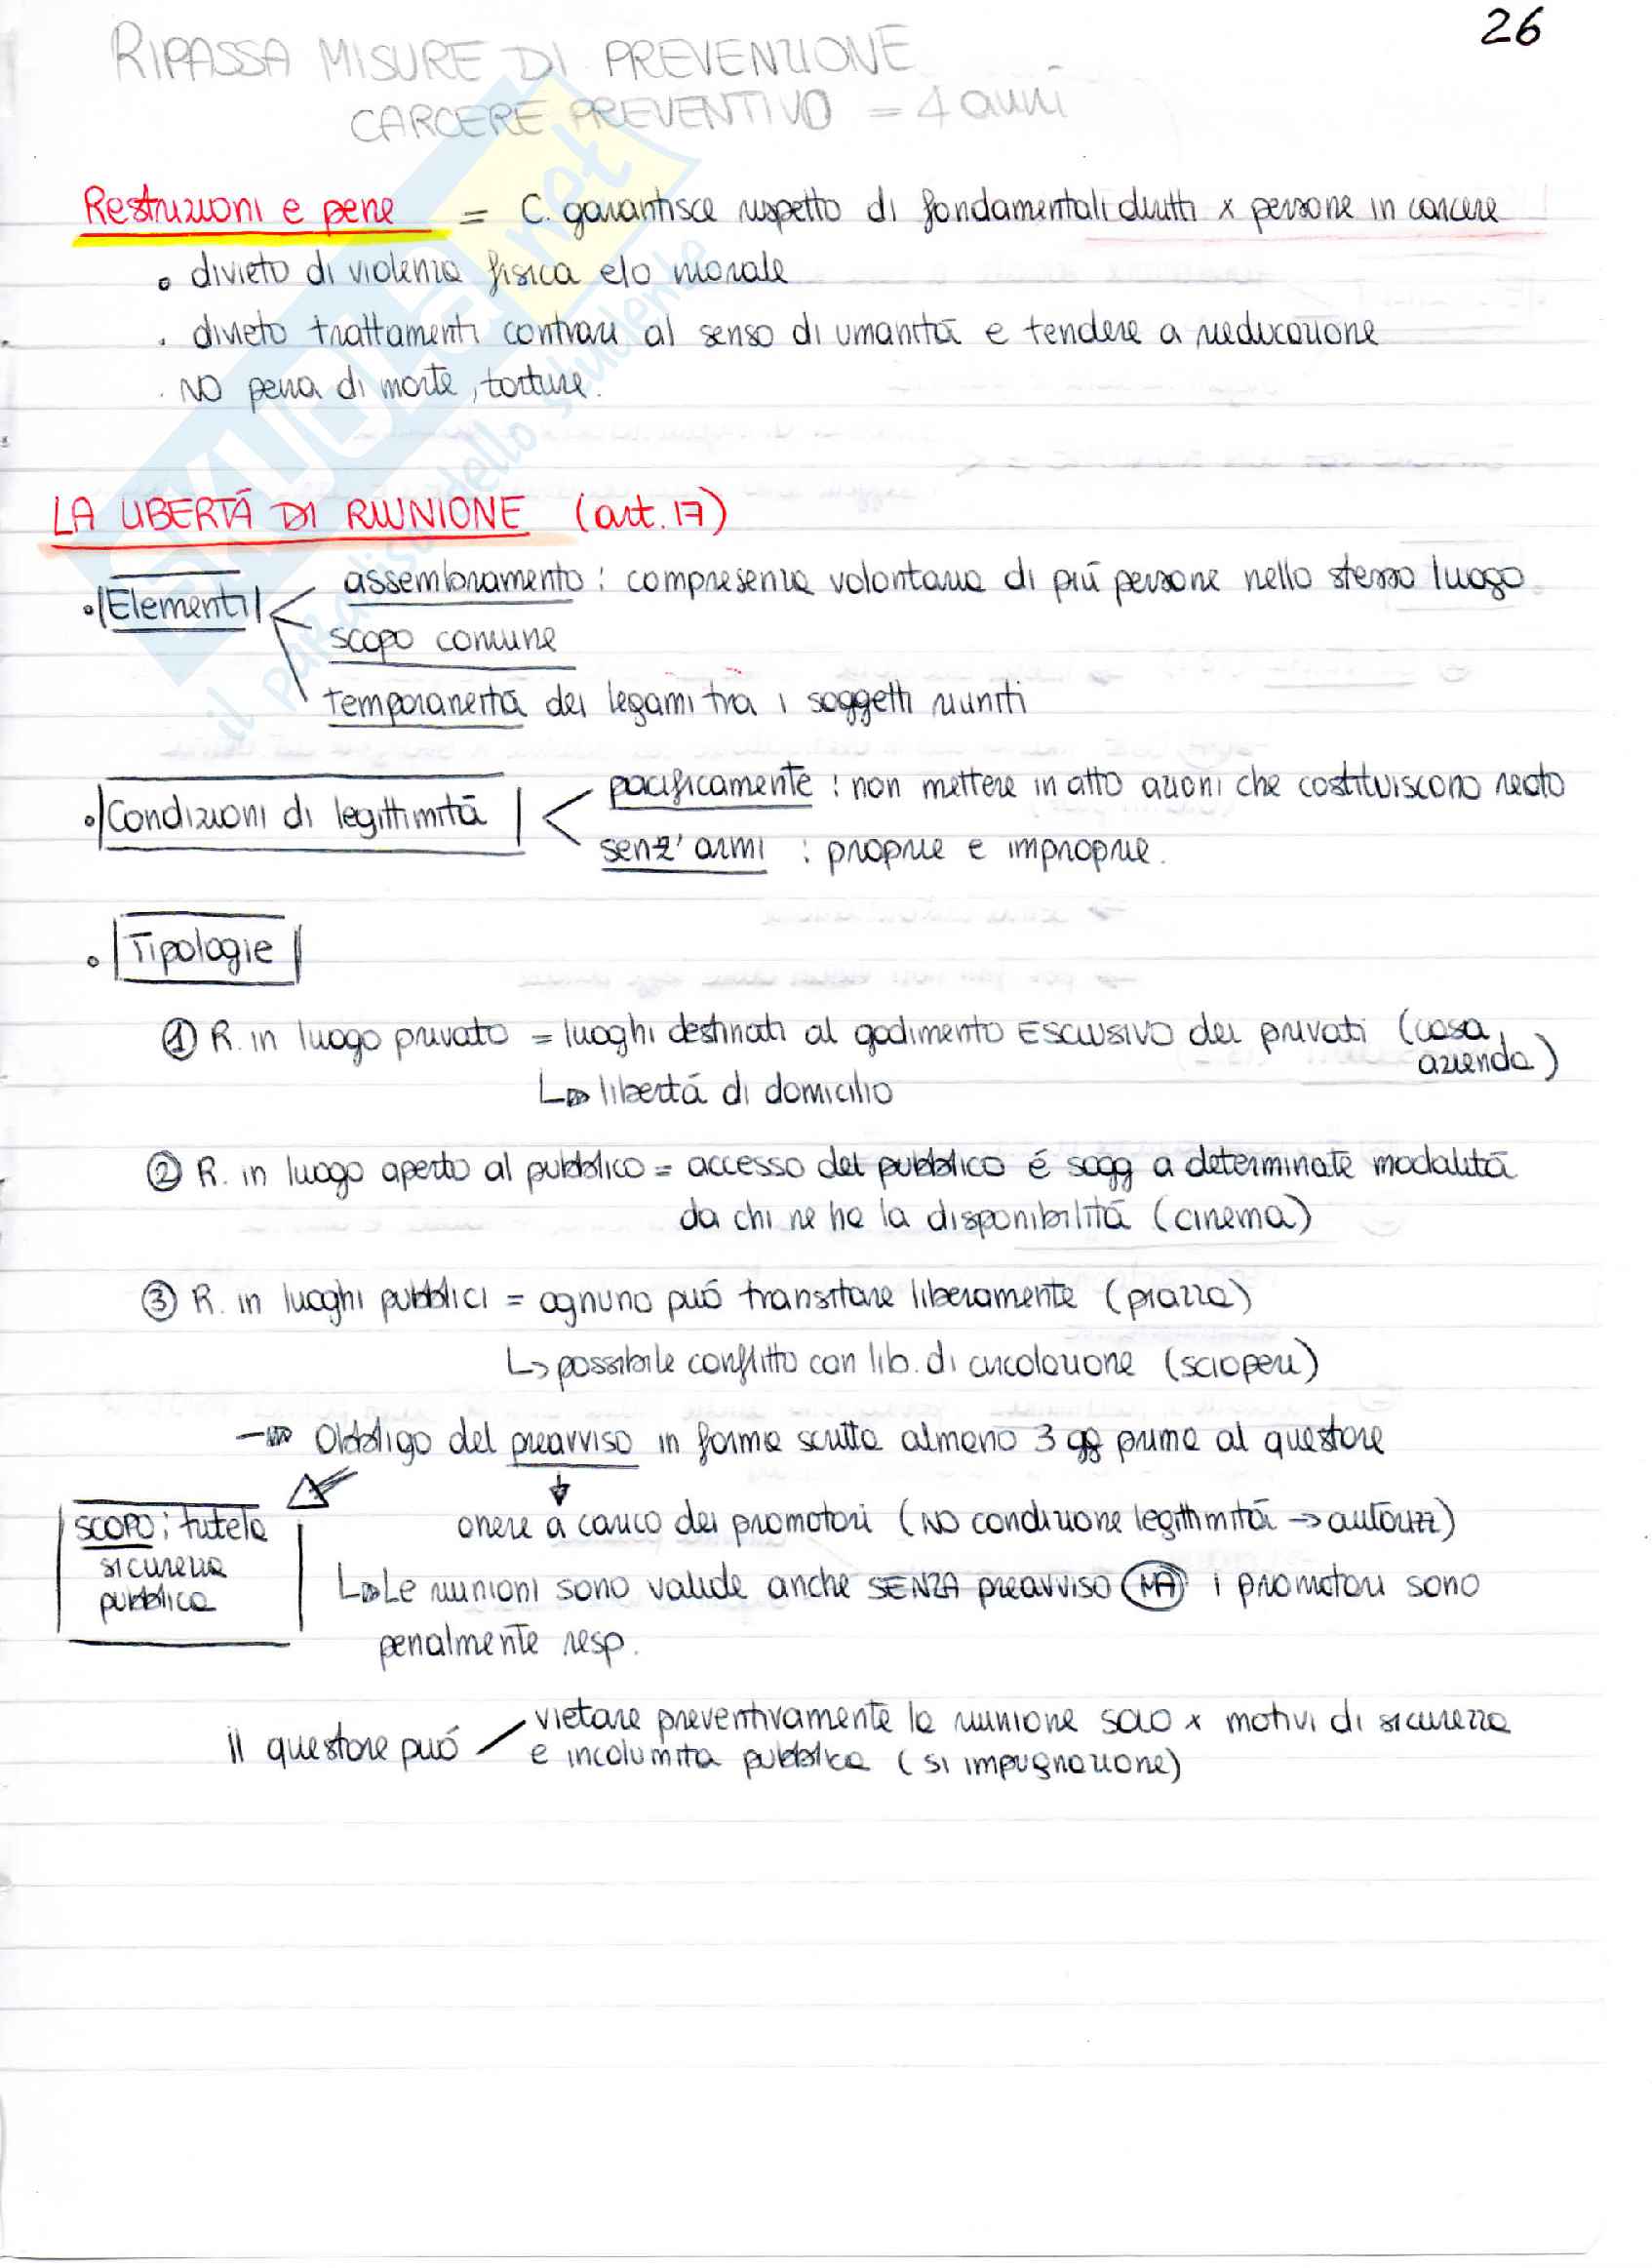 26
RIPASSA MISURE DI PREVENZIONE
CARCERE PREVENTIVO = 4 anni
Restrizioni e pene = C. garantisce rispetto di fondamentali diritti x persone in carcere
• divieto di violenza fisica e/o morale
• divieto trattamenti contrari al senso di umanità e tendere a rieducazione
• NO pena di morte, torture.
LA LIBERTÁ DI RIUNIONE (art. 17)
• Elementi
assembramento : compresenza volontaria di piú persone nello stesso luogo
scopo comune
temporaneità dei legami tra i soggetti riuniti
• Condizioni di legittimità
pacificamente : non mettere in atto azioni che costituiscono reato
senz' armi : proprie e improprie.
• Tipologie
① R. in luogo privato = luoghi destinati al godimento ESCLUSIVO dei privati (casa, azienda)
↳ libertá di domicilio
② R. in luogo aperto al pubblico = accesso del pubblico é sogg a determinate modalitá
da chi ne ha la disponibilitá (cinema)
③ R. in luoghi pubblici = ognuno puó transitare liberamente (piazza)
↳ possibile conflitto con lib. di circolazione (scioperi)
→ Obbligo del preavviso in forma scritta almeno 3 gg prima al questore
SCOPO: tutela
sicurezza
pubblica
onere a carico dei promotori (NO condizione legittimitá → autorizz)
↳ Le riunioni sono valide anche SENZA preavviso MA i promotori sono
penalmente resp.
il questore puó
vietare preventivamente la riunione solo x motivi di sicurezza
e incolumita pubblica (si impugnazione)
SKUOLA.net
il paradiso dello studente